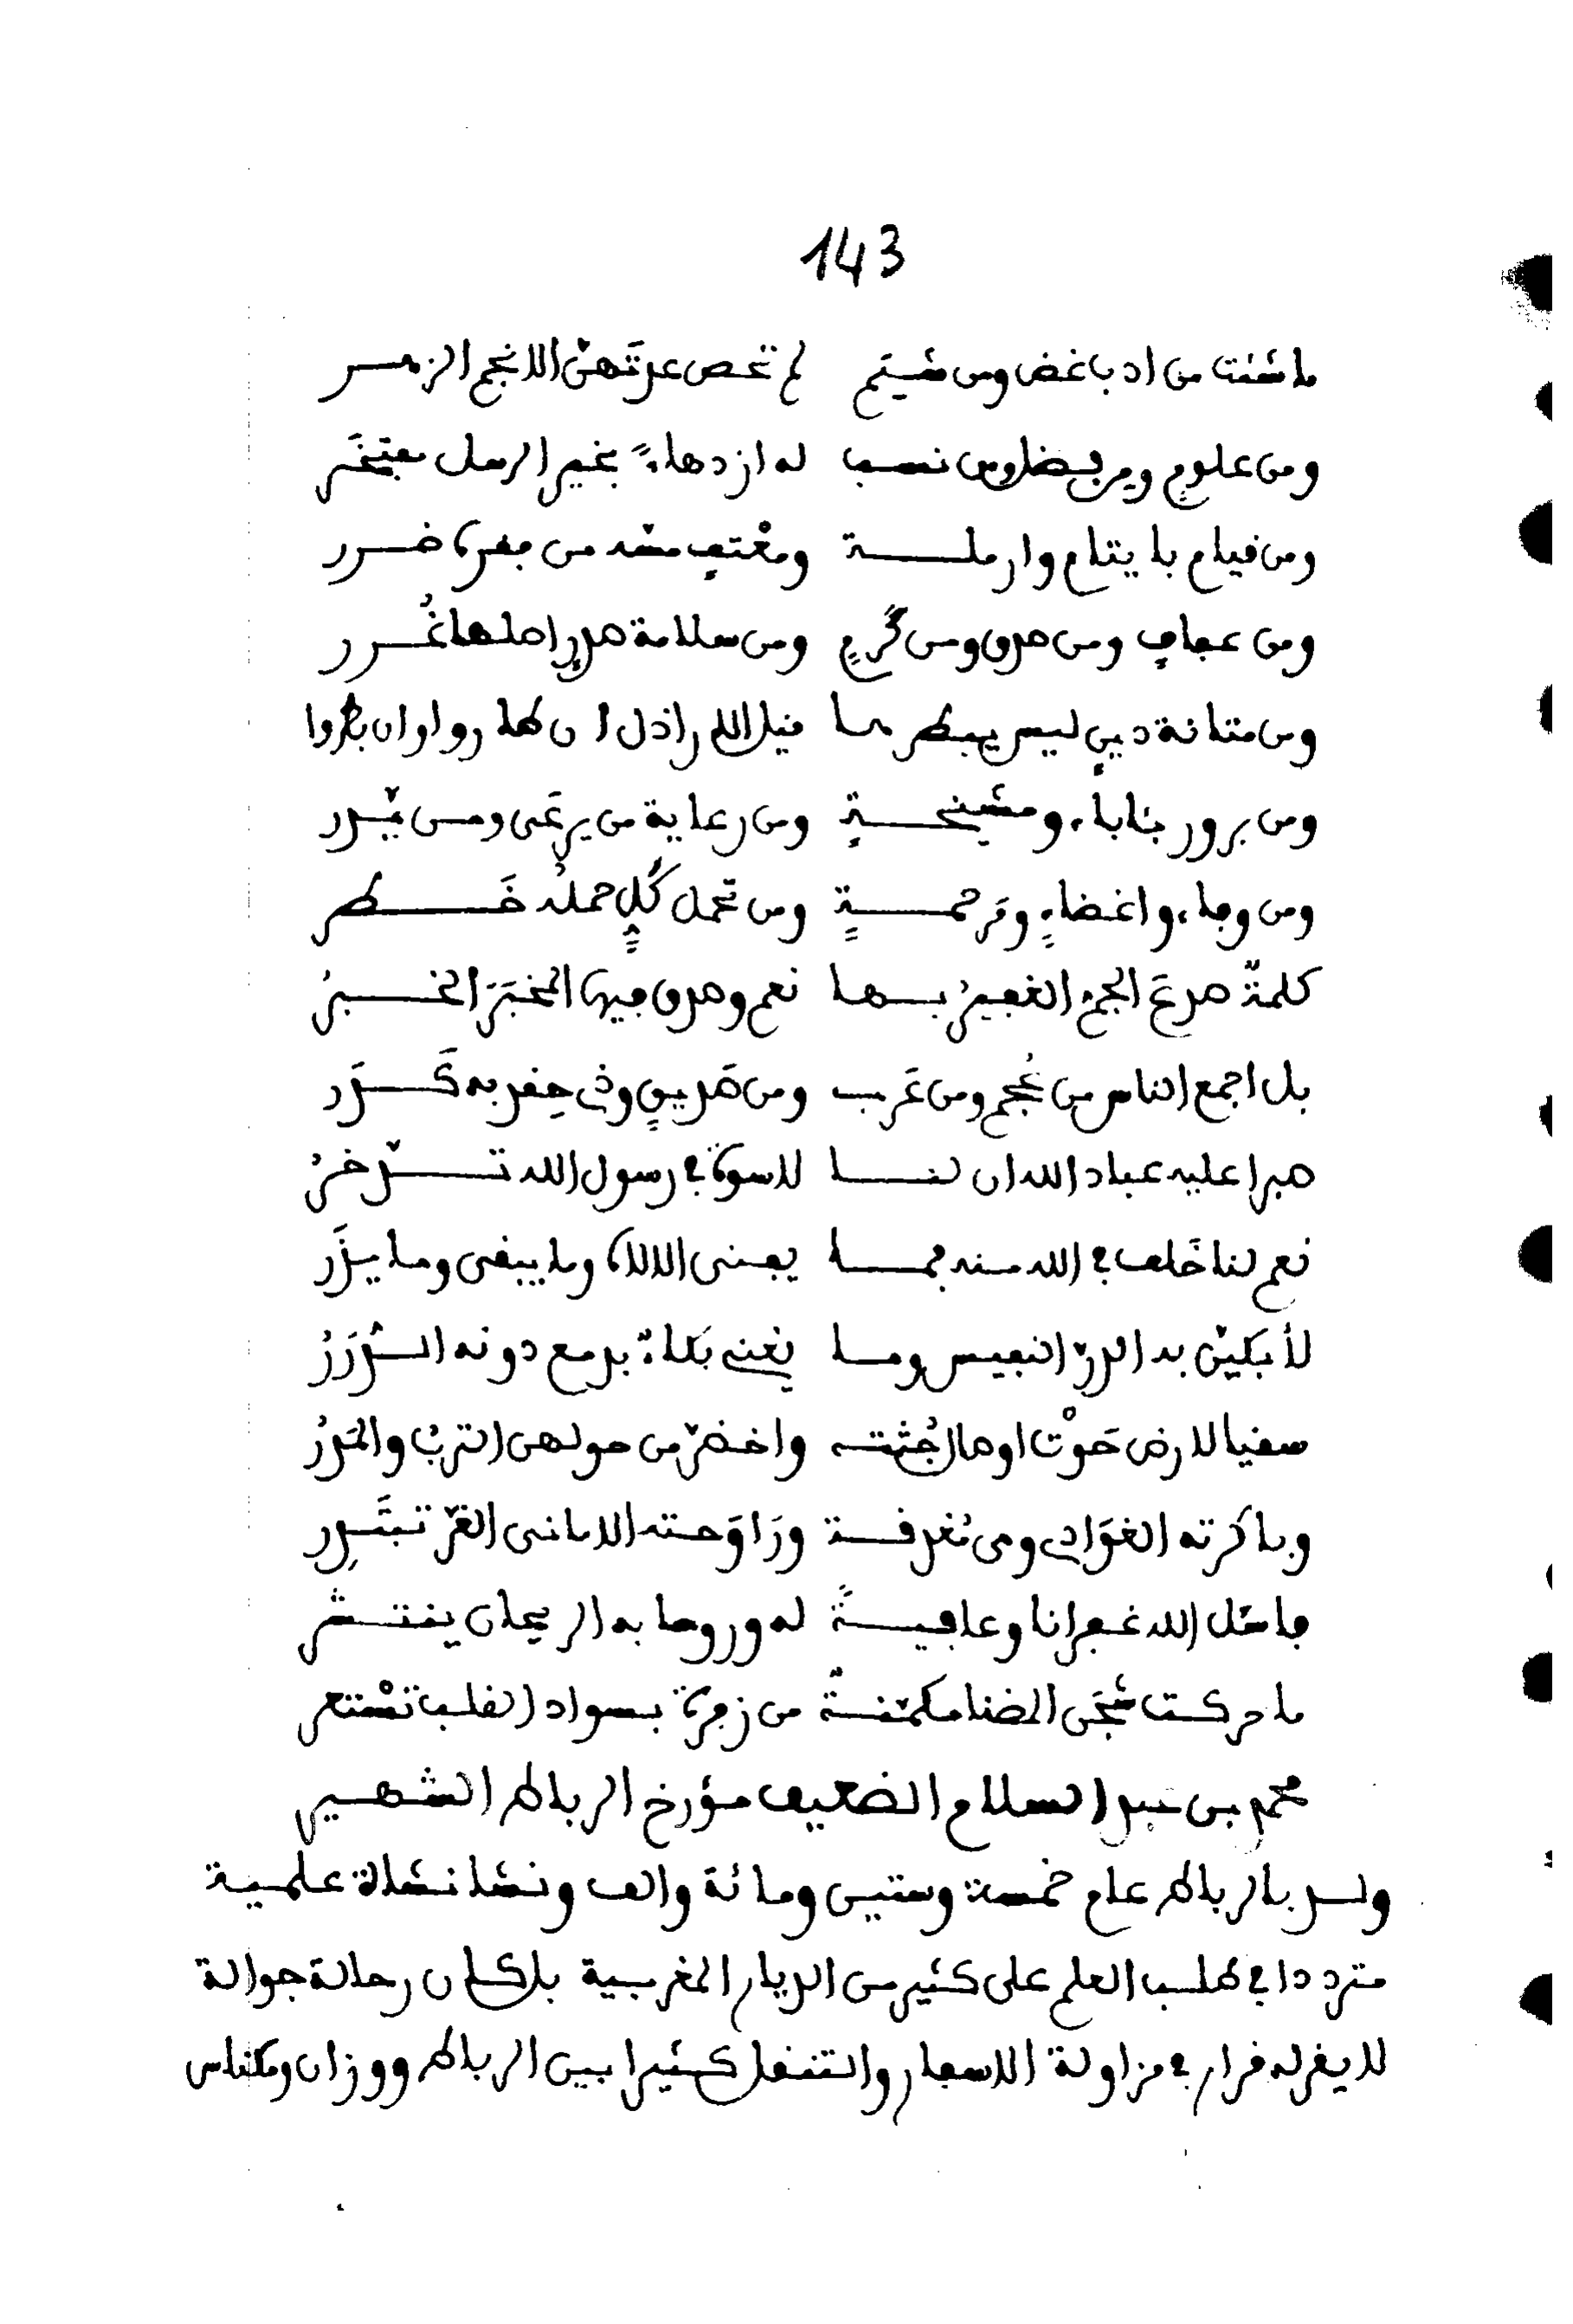 143
ما شئت من ادب غض ومن شيم لم تحص عدتهن الانجم الزهر
ومن علوم ومن فضل ومن نسب له ازدهاء بخير الرسل مفتخر
ومن قيام بايتام وارملة ومعتف مسه من فقره ضرر
ومن عفاف ومن صدق ومن كرم ومن سلامة صدر اصلها غرر
ومن متانة دين ليس يبطرها نيل الاذل ان
ومن برور بئاباء ومشيخة ومن رعاية من يرعى ومن يزر
ومن وفاء واغضاء ومرحمة ومن تحمل كل حمله خطر
كلمة صدع الجم الغفير بها نعم وصدق فيها المخبر الخبر
بل اجمع الناس من عجم ومن عرب ومن صديق وذي حقد به كدر
صبرا عليه عباد الله ان لنا لاسوة في رسول الله تدخر
نعم لنا خلف في الله منه فما يفنى الالاه وما يبقى وما يزر
لأبكين بدا الدر النفيس وما يغني بكاء بدمع دونه الدرر
سقيا لارض حوت اوصال جثته واخضر من حولهن الترب والمدر
وباكرته الغوادي وهي مغدقة وراوحته الاماني الغر تبتدر
فاسئل الله غفرانا وعافية له وروحا به الريحان ينتشر
ما حركت شجى المضنا مكمنة من زفرة بسواد القلب تستعر
محمد بن عبد السلام الضعيف مؤرخ الرباط الشهير
ولد بالرباط عام خمسة وستين ومائة والف ونشا نشاة علمية
مترددا في طلب العلم على كثير من الديار المغربية بل كان رحالة جوالة
لا يقر له قرار في مزاولة الاسفار والتنقل كثيرا بين الرباط ووزان ومكناس